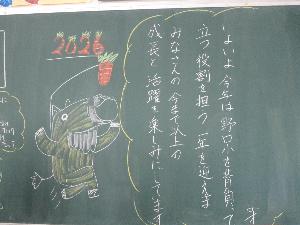 2026
いよいよ 今年は 野
立つ役割を担う 一年を迎えます
みなさんの 今まで以上の
成長と 活躍を楽しみにしています